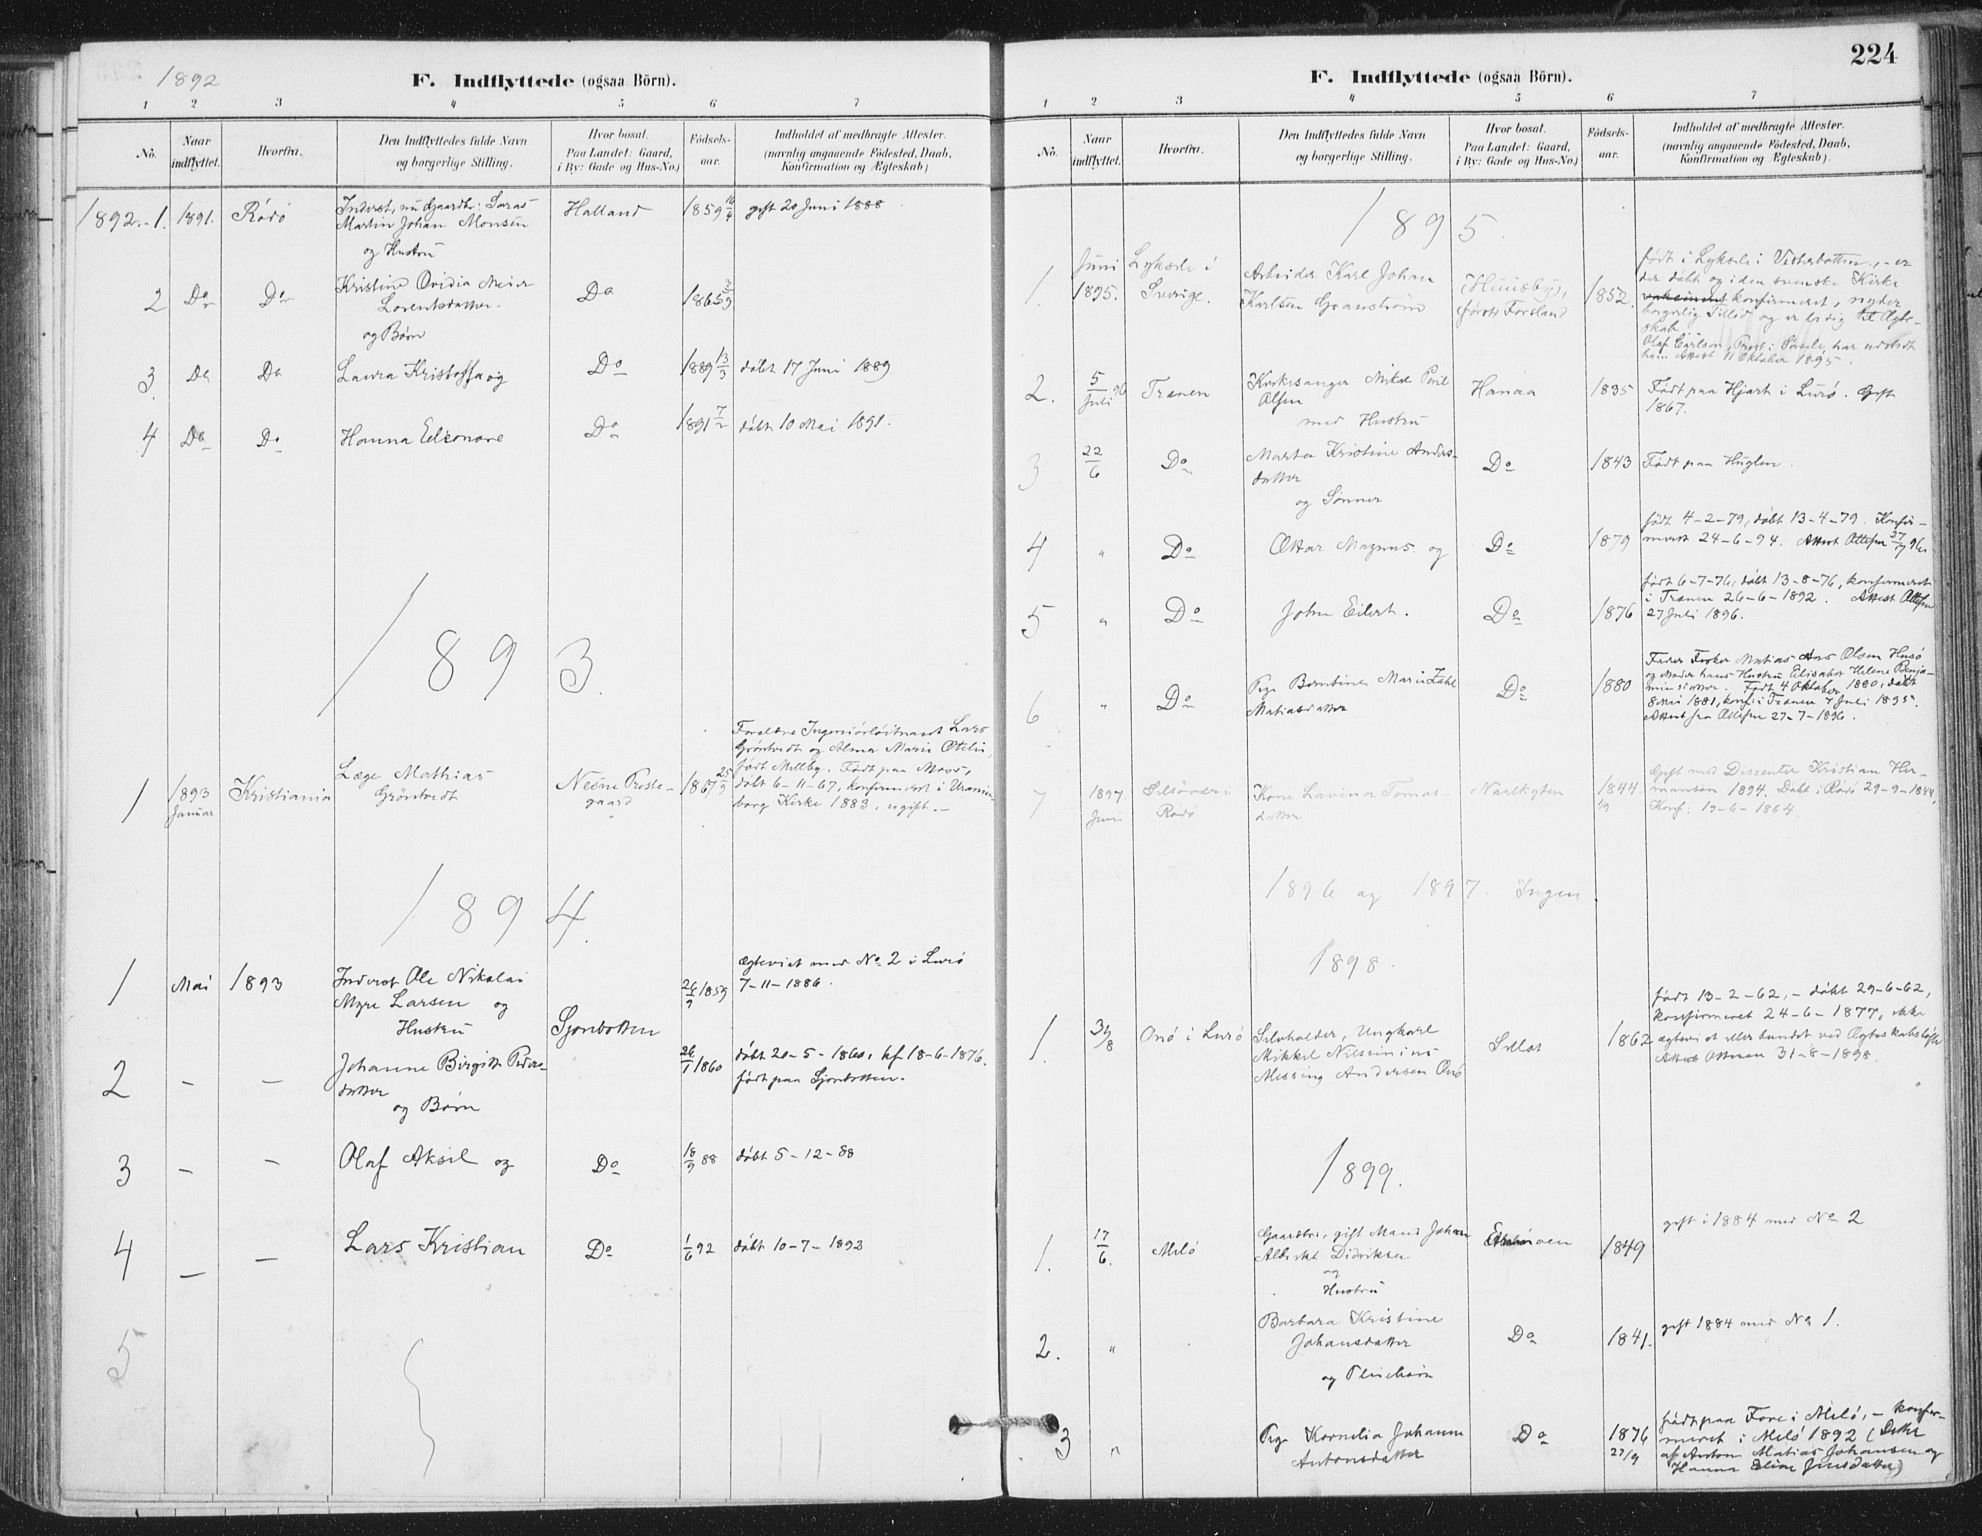 1892
F. Indflyttede (ogsaa Börn).
1 2 3 4 5 6 7
No. Naar indflyttet. Hvorfra. Den Indflyttedes fulde Navn og borgerlige Stilling. Hvor bosat. Paa Landet: Gaard, i By: Gade og Hus-No.) Fódsels-aar. Indholdet af medbragte Attester. (navnlig angaaende Födested, Daab, Konfirmation og Ægteskab)
1892.-1. 1891. Rödö Inderst, nu Gaardbr:
Martin Johan Monsen Halland 1859 gift 20 Juni 1888
og Hustru
2 Do Do Kristine Ovidia Meier
Lorentsdatter Do 1865
og Børn
3. Do Do Laura Kristoffa og Do 1889 13/3 döbt 17 Juni 1889
4 Do Do Hanna Eleonore Do 1891 7/2 döbt 10 Mai 1891.
1893.
Forældre Ingeniörlöitnant Lars
Gröntvedt og Alma Marie Otilie,
født Millby. Född paa Moss,
1 1893 Januar Kristiania Læge Mathias
Gröntvedt Nesne Preste-
gaard 1867 25/9 döbt 6-11-67, konfirmeret i Uranien-
borg Kirke 1883, ugift.-
1894.
1 Mai 1893 Inderst Ole Nikolai
Myre Larsen og
Hustru Sjonbotten 26/9 1859 Ægteviet med No 2 i Lurö
7-11-1886.
2 - - Johanne Birgitte Peders-
datter
og Børn 26/1 1860 döbt 20-5-1860, kf 18-6-1876.
født paa Sjonbotten.
3 - - Olaf Aksel og Do 18/9 88 döbt 5-12-88
4 - - Lars Kristian Do 1/6 92 döbt 10-7-1892
5
224
F. Indflyttede (ogsaa Börn).
1 2 3 4 5 6 7
No. Naar indflyttet. Hvorfra. Den Indflyttedes fulde Navn og borgerlige Stilling. Hvor bosat. Paa Landet: Gaard, i By: Gade og Hus-No.) Födsels-aar. Indholdet af medbragte Attester. (navnlig angaaende Födested, Daab, Konfirmation og Ægteskab).
1895.
1. Juni 1895. Lyksele i
Sverige. Arbeider Karl Johan
Karlsen Granström (Huusby),
først Forsland 1852. født i Lyksele i Vesterbotten, - er
der döbt og i den svenske Kirke
konfirmeret, nyder
borgerlig Tillid og er ledig til Ægte-
skab
Olaf Carlson, Prest i Sorsele, har udstedt
ham Attest 11 Oktober 1895.
2. 5/Juli 96 Trænen Kirkesanger Mikal Poul
Olsen
med Hustru Hanaa 1835 Født paa Hjart i Lurö. Gift
1867.
3 22/6 Do Marta Kristine Anders-
datter
og Sønner Do 1843 Født paa Huglen.
4 " Do Ottar Magnus og Do 1879 født 4-2-79, döbt 13-4-79. Konfir-
meret 24-6-94. Attest Ottesen 27/7 96.
5 " Do John Eilert. Do 1876 født 6-7-76, döbt 13-8-76, konfirmeret
i Trænen 26-6-1892. Attest Ottesen
27 Juli 1896.
6 " Do Pige Berntine Marie Zahl
Matiasdatter Do 1880 Fader Fisker Matias Olsen Husö
og Moder hans Hustru Elisabet Helene Benja-
minsdatter. Født 4 Oktober 1880, døbt
8 Mai 1881, konf. i Trænen 7 Juli 1895.
Attest fra Ottesen 27-7-1896.
7 1897 Juni Selsövær i
Rödö Kone Lavina Tomas-
datter 1844 Gift med Dissenter Kristian Her-
mansen 1894. Döbt i Rödö 29-9-1844,
Konf: 19-6-1864.
1896 og 1897. Ingen
1898.
1. 31/8 Onö i Lurö Selvholder, Ungkarl
Mikkel
Messing Andersen Onö 1862 født 13-2-62, - döbt 29-6-62,
konfirmeret 24-6-1877, ikke
ægteviet eller bundet ved Ægteskabsløfte
Attest Ottesen 31-8-1898.
1899.
1. 17/6. Melö Gaardbr., gift Mand Johan
Albrikt Didriksen
og
Hustru 1849 gift i 1884 med No 2
2. " Barbara Kristine
Johansdatter
og Pleiebarn Do 1841. gift 1884 med No 1.
3 " Pige Kornelia Johanne
Antonsdatter Do 1876
27/9 født paa Fore i Melö, - konfir-
meret i Melö 1892 (Datter
af Anton Matias Johansen og
Hanna Eline Jensdatter)